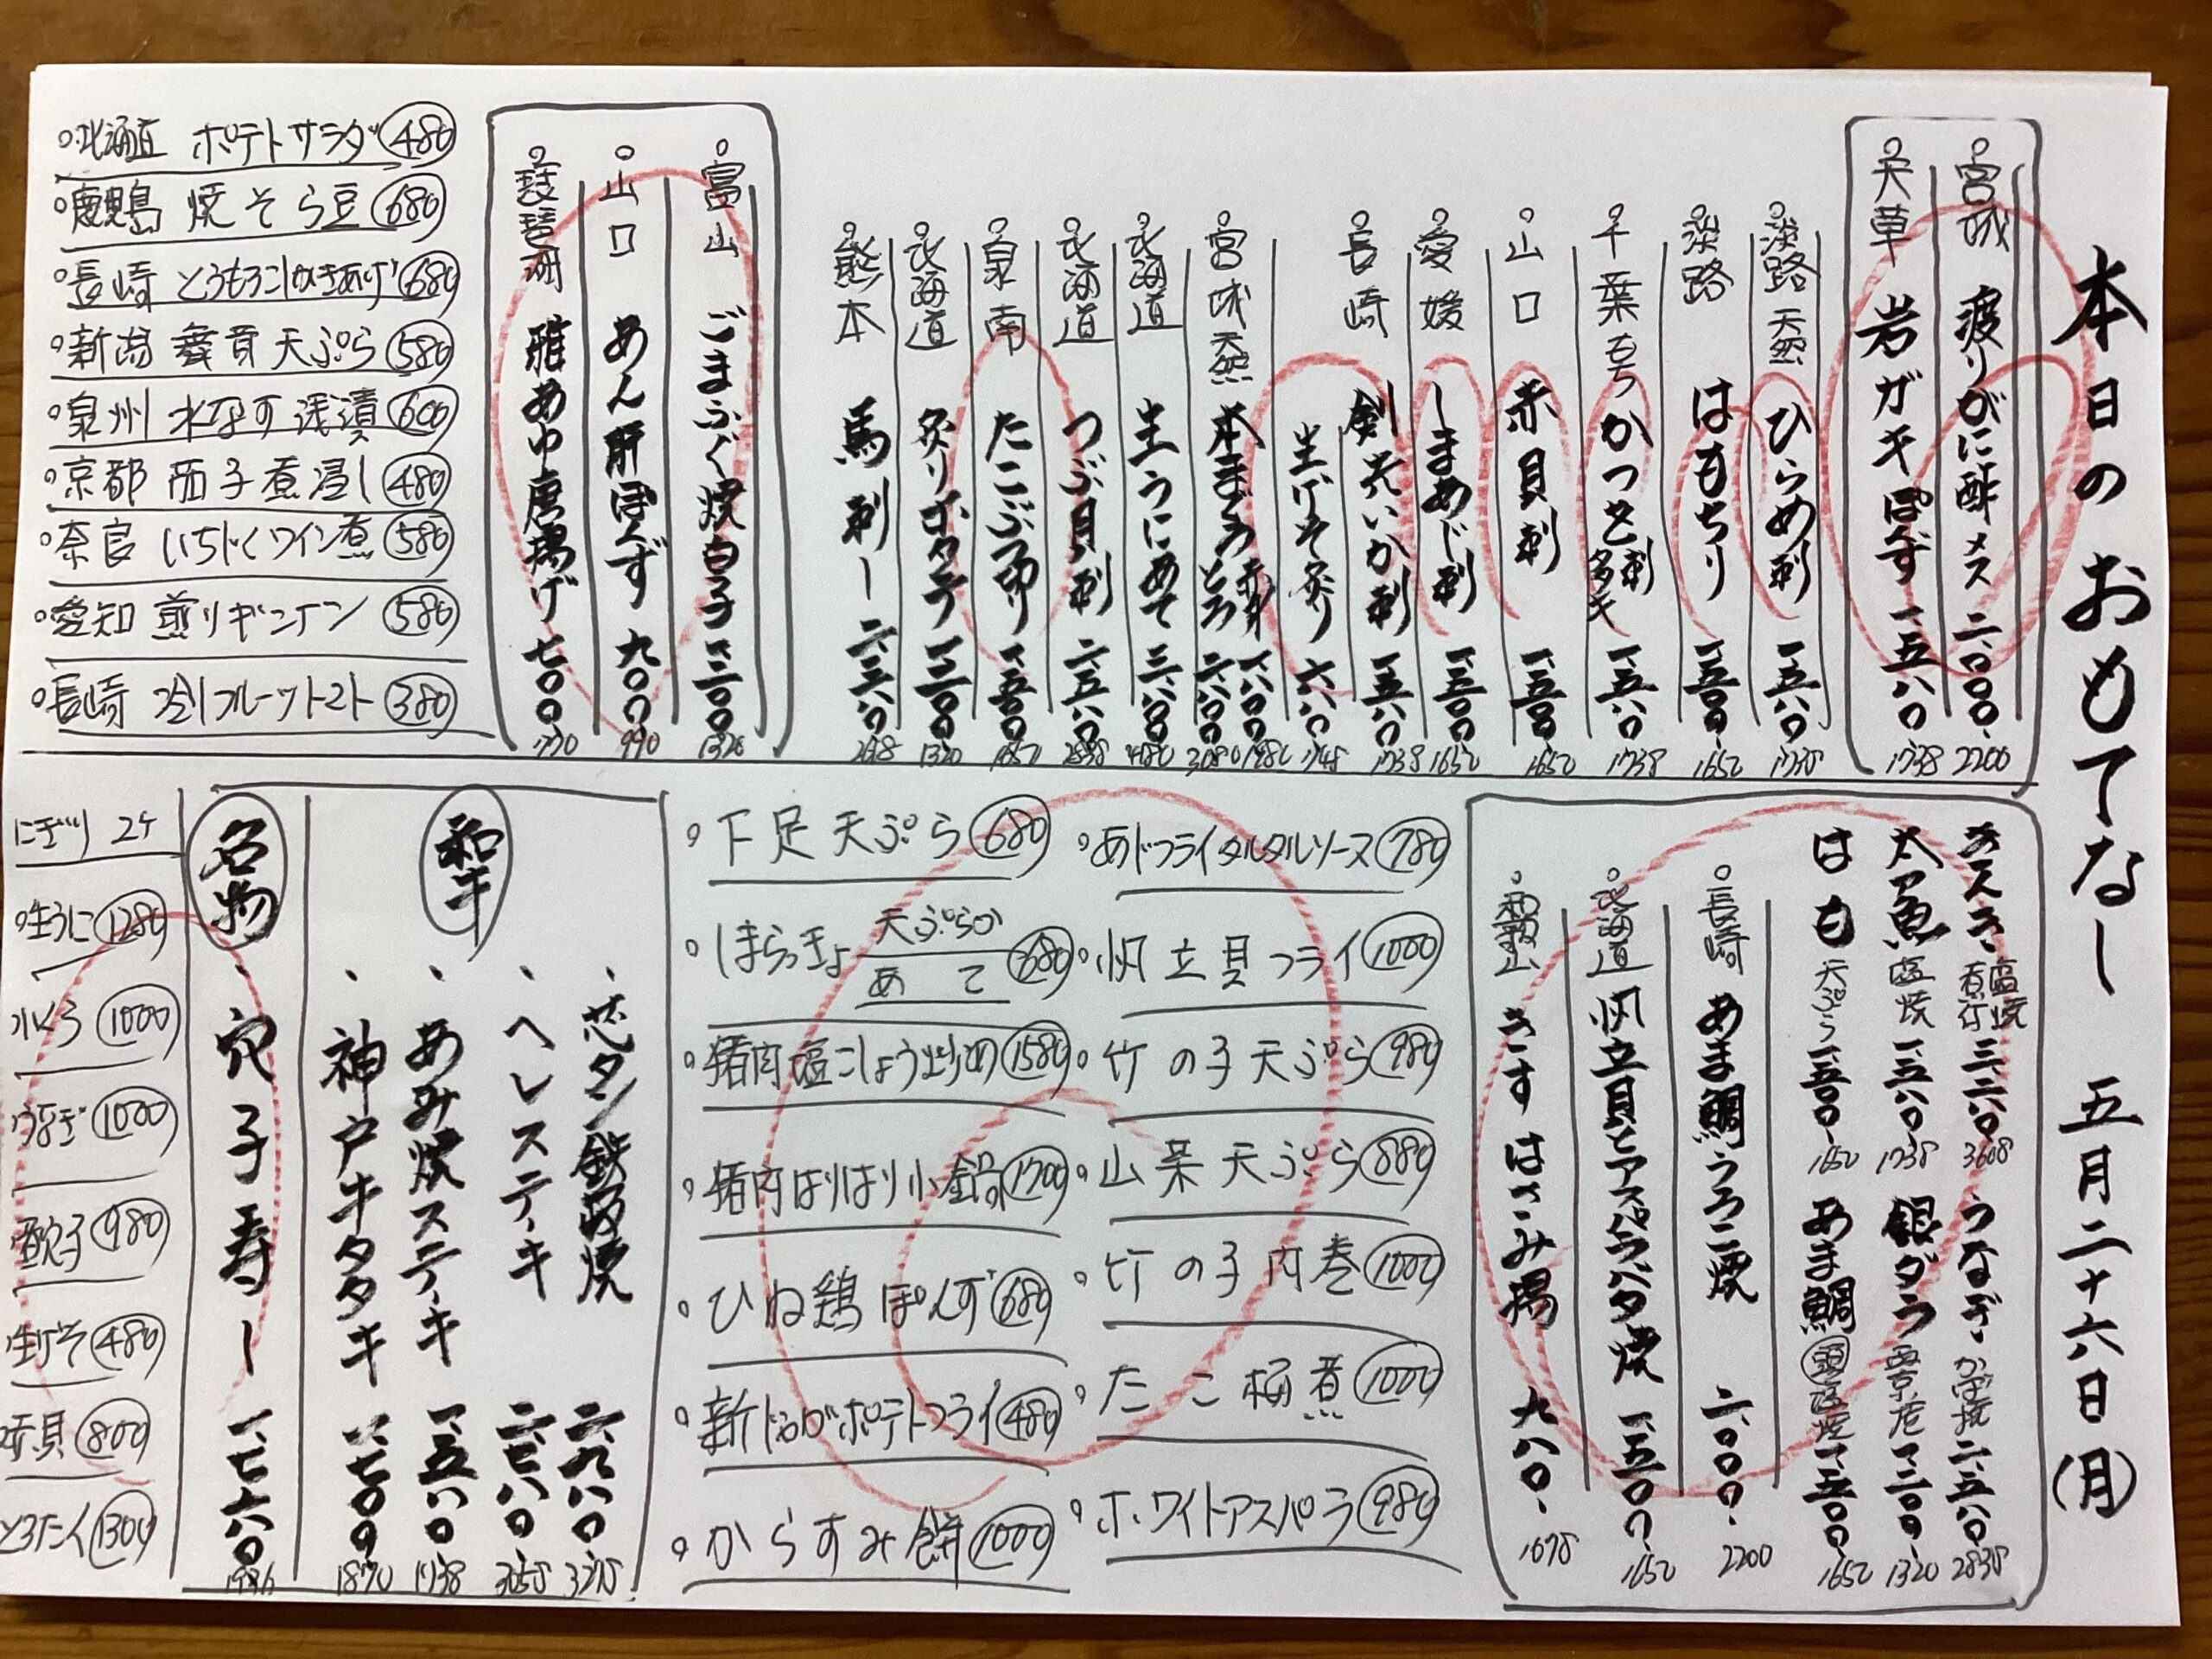 本日のおもてなし 五月二十六日(月)
宮城 渡りがに酢 メス 二、〇〇〇 2200
天草 岩ガキぽんず 一、五八〇 1738
淡路 天然 ひらめ刺 一、五八〇 1738
淡路 はもちり 一、五〇〇 1650
千葉 もち かつを 刺 タタキ 一、五八〇 1738
山口 赤貝刺 一、五〇〇 1650
愛媛 しまあじ刺 一、五〇〇 1650
長崎 剣先いか刺 一、五八〇 1738
生げそ炙り 六八〇 748
宮城 天然 本まぐろ 赤身 一、八〇〇 1980
とろ 二、八〇〇 3080
北海道 生うにあて 三、八〇〇 4180
北海道 つぶ貝刺 二、五八〇 2838
泉南 たこぶつ切り 一、五〇〇 1650
北海道 炙りホタテ 一、二〇〇 1320
熊本 馬刺し
富山 ごまふぐ焼白子 一、二〇〇 1320
山口 あん肝ぽんず 九〇〇 990
琵琶湖 稚あゆ唐揚げ 七〇〇 770
北海道 ポテトサラダ 480
鹿児島 焼そら豆 680
長崎 とうもろこしかきあげ 680
新潟 舞茸天ぷら 580
泉州 水なす浅漬 600
京都 茄子煮浸し 480
奈良 いちじくワイン煮 580
愛知 煎りギンナン 580
長崎 冷しフルーツトマト 380
塩焼 煮付 三、二八〇 3608
太刀魚 塩焼 一、五八〇 1738
はも 天ぷら 一、五〇〇 1650
うなぎ かば焼 二、五八〇 2838
銀ダラ 西京焼 一、二〇〇 1320
あま鯛 頭 塩焼 一、五〇〇 1650
長崎 あま鯛うろこ焼 二、〇〇〇 2200
北海道 帆立貝とアスパラバター焼 一、五〇〇 1650
和歌山 きすはさみ揚 九八〇 1078
あじフライタルタルソース 780
帆立貝フライ 1000
竹の子天ぷら 980
山菜天ぷら 880
竹の子肉巻 1000
たこ桜煮 1000
ホワイトアスパラ 980
下足天ぷら 680
ほらっきょ 天ぷら あて 680
猪肉塩こしょう炒め 1580
猪肉はりはり小鍋 1700
ひね鶏ぽんず 680
新じゃがポテトフライ 480
からすみ餅 1000
和牛
芯タン鉄板焼 二、九八〇 3278
ヘレステーキ 二、七八〇 3058
あみ焼ステーキ 一、五八〇 1738
神戸牛タタキ 一、七〇〇 1870
名物
穴子寿し 一、七六〇
にぎり 2ケ
生うに 1280
いくら 1000
うなぎ 1000
980
生げそ 480
赤貝 800
とろたく 1300